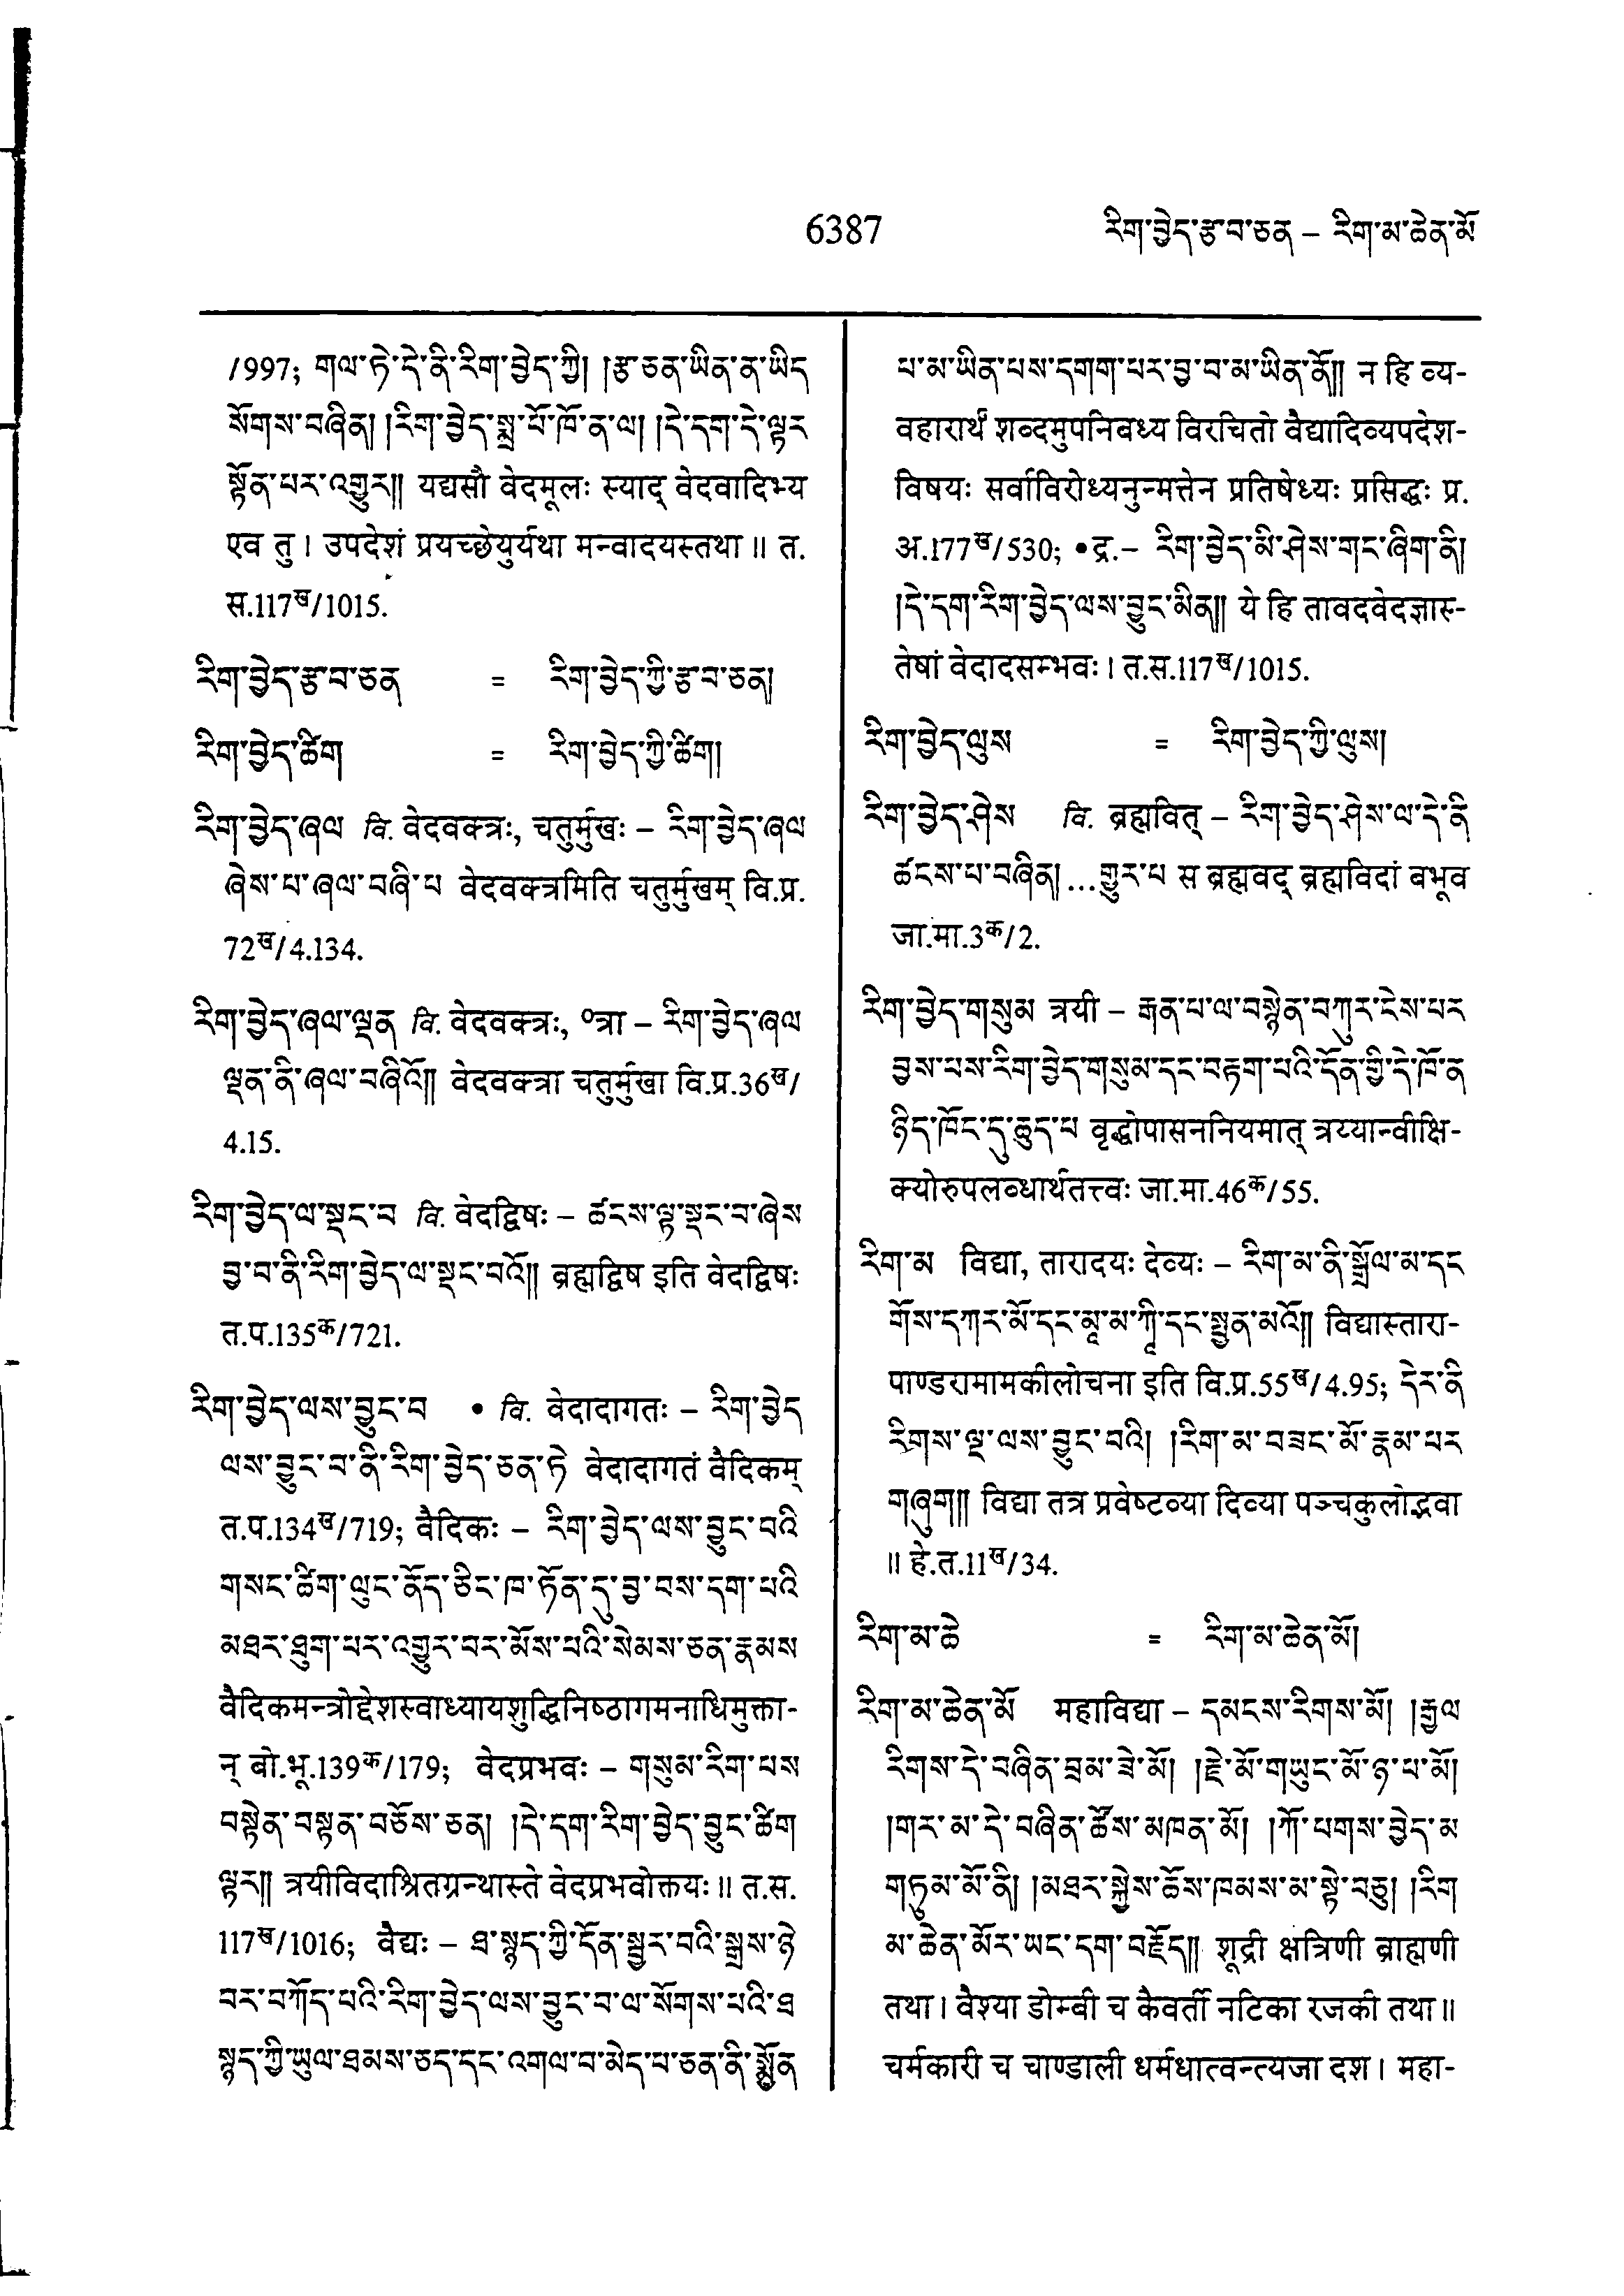 6387
རིག་བྱེད་རྩ་བ་ཅན – རིག་མ་ཆེན་མོ
/997; གལ་ཏེ་དེ་ནི་རིག་བྱེད་ཀྱི། །རྩ་ཅན་ཡིན་ན་ཡིད
སོགས་བཞིན། །རིག་བྱེད་སྨྲ་པོ་ཁོ་ན་ལ། །དེ་དག་དེ་ལྟར
སྟོན་པར་འགྱུར།། यद्यसौ वेदमूलः स्याद् वेदवादिभ्य
एव तु । उपदेशं प्रयच्छेयुर्यथा मन्वादयस्तथा ॥ त.
स.117ख/1015.
རིག་བྱེད་རྩ་བ་ཅན = རིག་བྱེད་ཀྱི་རྩ་བ་ཅན།
རིག་བྱེད་ཚིག = རིག་བྱེད་ཀྱི་ཚིག།
རིག་བྱེད་ཞལ वि. वेदवक्त्रः, चतुर्मुखः – རིག་བྱེད་ཞལ
ཞེས་པ་ཞལ་བཞི་པ वेदवक्त्रमिति चतुर्मुखम् वि.प्र.
72ख/4.134.
རིག་བྱེད་ཞལ་ལྡན वि. वेदवक्त्रः, ॰त्रा – རིག་བྱེད་ཞལ
ལྡན་ནི་ཞལ་བཞིའོ།། वेदवक्त्रा चतुर्मुखा वि.प्र.36ख/
4.15.
རིག་བྱེད་ལ་སྡང་བ वि. वेदद्विषः – ཚངས་ལྟ་སྡང་བ་ཞེས
བྱ་བ་ནི་རིག་བྱེད་ལ་སྡང་བའོ།། ब्रह्मद्विष इति वेदद्विषः
त.प.135क/721.
རིག་བྱེད་ལས་བྱུང་བ • वि. वेदादागतः – རིག་བྱེད
ལས་བྱུང་བ་ནི་རིག་བྱེད་ཅན་ཏེ वेदादागतं वैदिकम्
त.प.134ख/719; वैदिकः – རིག་བྱེད་ལས་བྱུང་བའི
གསང་ཚིག་ལུང་ནོད་ཅིང་ཁ་ཏོན་དུ་བྱ་བས་དག་པའི
མཐར་ཐུག་པར་འགྱུར་བར་མོས་པའི་སེམས་ཅན་རྣམས
वैदिकमन्त्रोद्देशस्वाध्यायशुद्धिनिष्ठागमनाधिमुक्ता-
न् बो.भू.139क/179; वेदप्रभवः – གསུམ་རིག་པས
བསྟེན་བསྟན་བཅོས་ཅན། །དེ་དག་རིག་བྱེད་བྱུང་ཚིག
ལྟར།། त्रयीविदाश्रितग्रन्थास्ते वेदप्रभवोक्तयः ॥ त.स.
117ख/1016; वैद्यः – ཐ་སྙད་ཀྱི་དོན་སྦྱར་བའི་སྒྲས་ཉེ
བར་བཀོད་པའི་རིག་བྱེད་ལས་བྱུང་བ་ལ་སོགས་པའི་ཐ
སྙད་ཀྱི་ཡུལ་ཐམས་ཅད་དང་འགལ་བ་མེད་པ་ཅན་ནི་སྨྱོན
པ་མ་ཡིན་པས་དགག་པར་བྱ་བ་མ་ཡིན་ནོ།། न हि व्य-
वहारार्थं शब्दमुपनिबध्य विरचितो वैद्यादिव्यपदेश-
विषयः सर्वाविरोध्यनुन्मत्तेन प्रतिषेध्यः प्रसिद्धः प्र.
अ.177ख/530; • द्र.– རིག་བྱེད་མི་ཤེས་གང་ཞིག་ནི།
།དེ་དག་རིག་བྱེད་ལས་བྱུང་མིན།། ये हि तावदवेदज्ञास्-
तेषां वेदादसम्भवः । त.स.117ख/1015.
རིག་བྱེད་ལུས = རིག་བྱེད་ཀྱི་ལུས།
རིག་བྱེད་ཤེས वि. ब्रह्मवित् – རིག་བྱེད་ཤེས་ལ་དེ་ནི
ཚངས་པ་བཞིན། ...གྱུར་པ स ब्रह्मवद् ब्रह्मविदां बभूव
जा.मा.3क/2.
རིག་བྱེད་གསུམ त्रयी – རྒན་པ་ལ་བསྙེན་བཀུར་ངེས་པར
བྱས་པས་རིག་བྱེད་གསུམ་དང་བརྟག་པའི་དོན་གྱི་དེ་ཁོ་ན
ཉིད་ཁོང་དུ་ཆུད་པ वृद्धोपासननियमात् त्रय्यान्वीक्षि-
क्योरुपलब्धार्थतत्त्वः जा.मा.46क/55.
རིག་མ विद्या, तारादयः देव्यः – རིག་མ་ནི་སྒྲོལ་མ་དང
གོས་དཀར་མོ་དང་མཱ་མ་ཀཱི་དང་སྤྱན་མའོ།། विद्यास्तारा-
पाण्डरामामकीलोचना इति वि.प्र.55ख/4.95; དེར་ནི
རིགས་ལྔ་ལས་བྱུང་བའི། །རིག་མ་བཟང་མོ་རྣམ་པར
གཞུག།། विद्या तत्र प्रवेष्टव्या दिव्या पञ्चकुलोद्भवा
॥ हे.त.11ख/34.
རིག་མ་ཆེ = རིག་མ་ཆེན་མོ།
རིག་མ་ཆེན་མོ महाविद्या – དམངས་རིགས་མོ། །རྒྱལ
རིགས་དེ་བཞིན་བྲམ་ཟེ་མོ། །རྗེ་མོ་གཡུང་མོ་ཉ་པ་མོ།
།གར་མ་དེ་བཞིན་ཚོས་མཁན་མོ། །ཀོ་པགས་བྱེད་མ
གཏུམ་མོ་ནི། །མཐར་སྐྱེས་ཆོས་ཁམས་མ་སྟེ་བཅུ། །རིག
མ་ཆེན་མོར་ཡང་དག་བརྗོད།། शूद्री क्षत्रिणी ब्राह्मणी
तथा । वैश्या डोम्बी च कैवर्ती नटिका रजकी तथा ॥
चर्मकारी च चाण्डाली धर्मधात्वन्त्यजा दश । महा-